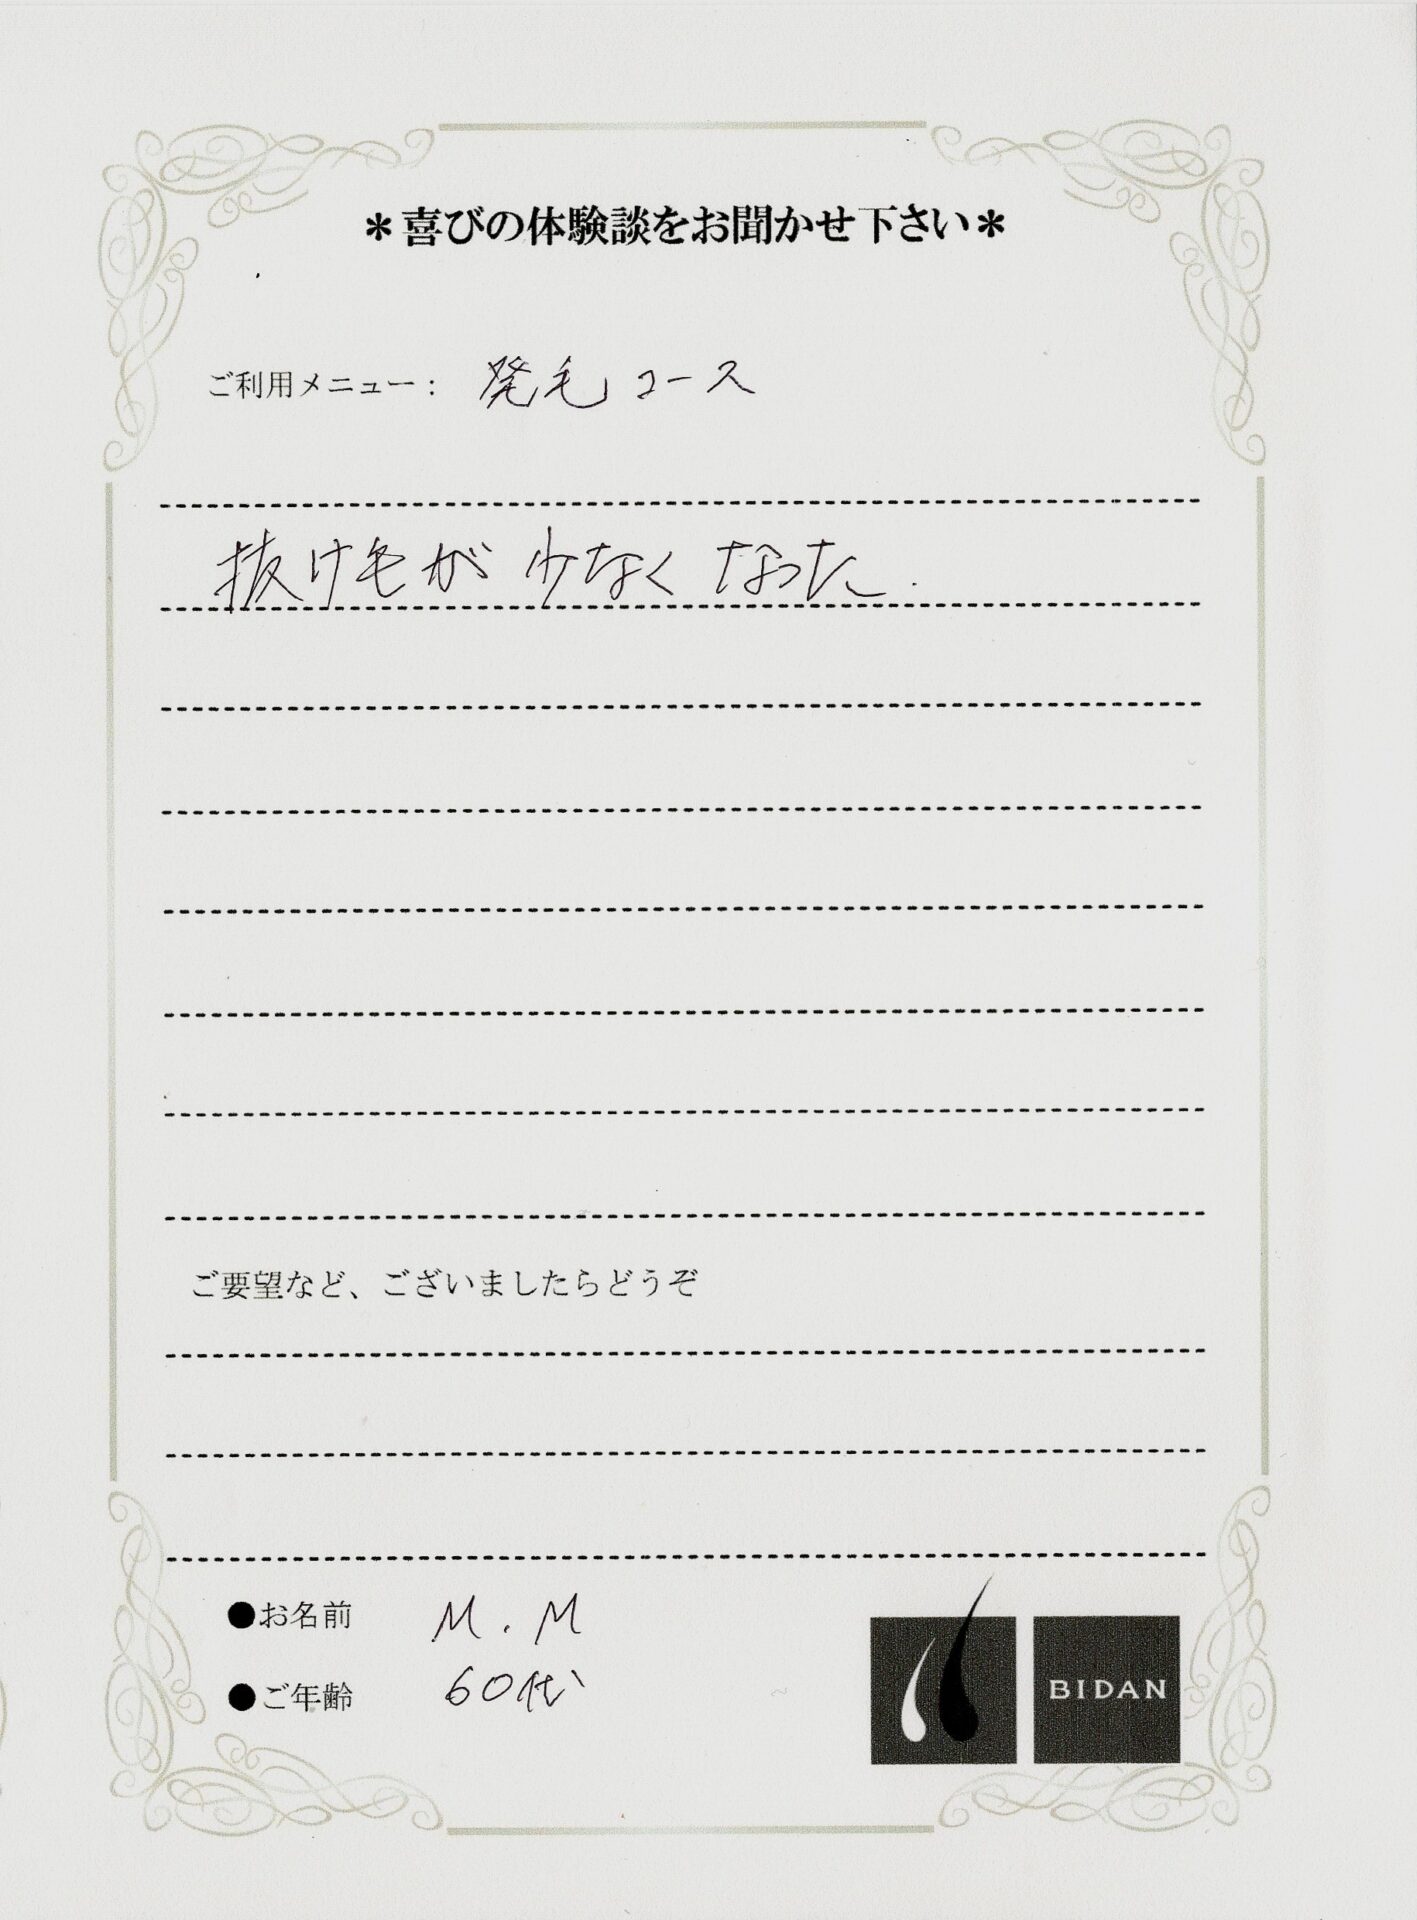 ＊喜びの体験談をお聞かせ下さい＊
ご利用メニュー： 発毛コース
抜け毛が少なくなった.
ご要望など、ございましたらどうぞ
●お名前 M.M
●ご年齢 60代
BIDAN